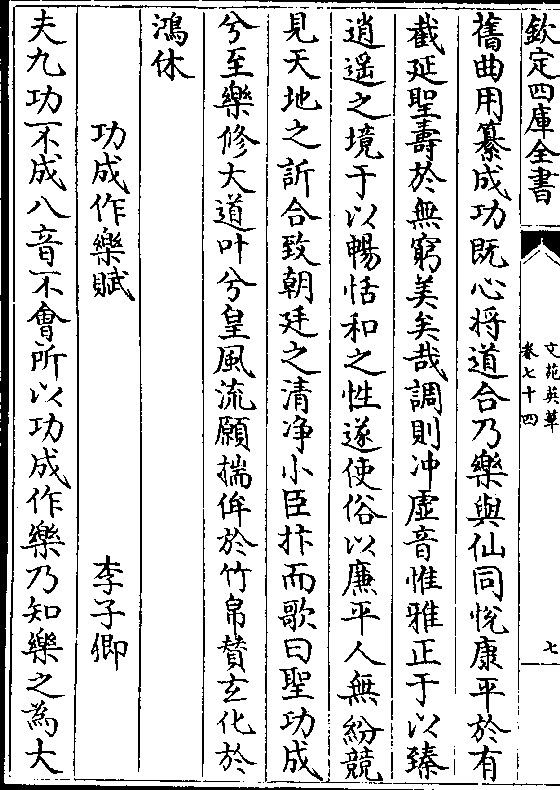 欽定四庫全書
文苑英華
卷七十四
七
舊曲用纂成功既心將道合乃樂與仙同悅康平於有
截延聖壽於無窮美矣哉調則冲虛音惟雅正于以臻
逍遥之境于以暢恬和之性遂使俗以廉平人無紛競
見天地之訢合致朝廷之清净小臣抃而歌曰聖功成
兮至樂修大道叶兮皇風流願揣侔於竹帛賛玄化於
鴻休
功成作樂賦 李子卿
夫九功不成八音不會所以功成作樂乃知樂之為大